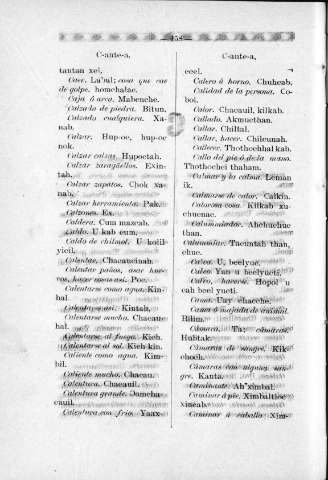 158
C-ante-a,
tantan xel.
Caer. La'bul; cosa que cae
de golpe. homchalac.
Caja ó arca. Mabenche.
Calzado de piedra. Bitun.
Calzado cualquiera. Xa-
nab.
Calzar. Hup-oc, hup-oc
nok.
Calzar calzar. Hupoctah.
Calzar zaragüelles. Exin-
tah.
Calzar zapatos. Choi xa-
nab.
Calzar herramienta. Pak.
Calzones. Ex.
Caldera. Cum mazcab.
Caldo. U kab cum.
Caldo de chilmol. U kolil
yicil.
Calentar. Chacancinah.
Calentar paños, asar hue-
Poc.
Calentarse como agua. Kin-
bal.
Kintah.
Calentarse mucho. Chacaue-
hal.
Calentarse al fuego. Kich.
Calentarse al sol. Kich-kin.
Caliente como agua. Kim-
bil.
Caliente mucho. Chacau.
Calentura. Chacauil.
Calentura grande. Domcha-
cauil.
Calentura con frio. Yaax-
C-ante-a,
ceel.
Calera ú horno. Chuhcab.
Calidad de la persona. Co-
boi.
Calor. Chacauil, kilkab.
Callado. Akmucthan.
Callar. Chiltal.
Callar, hacer. Chileunah.
Callecer. Thothochhal kab.
Callo del pié ó de la mano.
Thothochci thaham.
Calmar y la calma. Leman
ik.
Calmarse de calor. Calkin.
Calurosa cosa. Kilkab xu-
chucnac.
Ahchuchuc
than.
Tacuntah than,
chuc.
Calvo. U, beelyuc.
Calvo Yan u beelyucti.
Calvo, hacerse. Hopol u
cah beel yucti.
Cama. Uay chacche.
Bilim.
Camara. Ta; cámaras,
Hubtak.
Cámaras de sangre. Kik
choch.
Cámaras con alguna san-
gre. Kanta.
Caminante Ah'ximbal.
Caminar á pié. Ximbaltice
xinbah.
Caminar á caballo Xim-